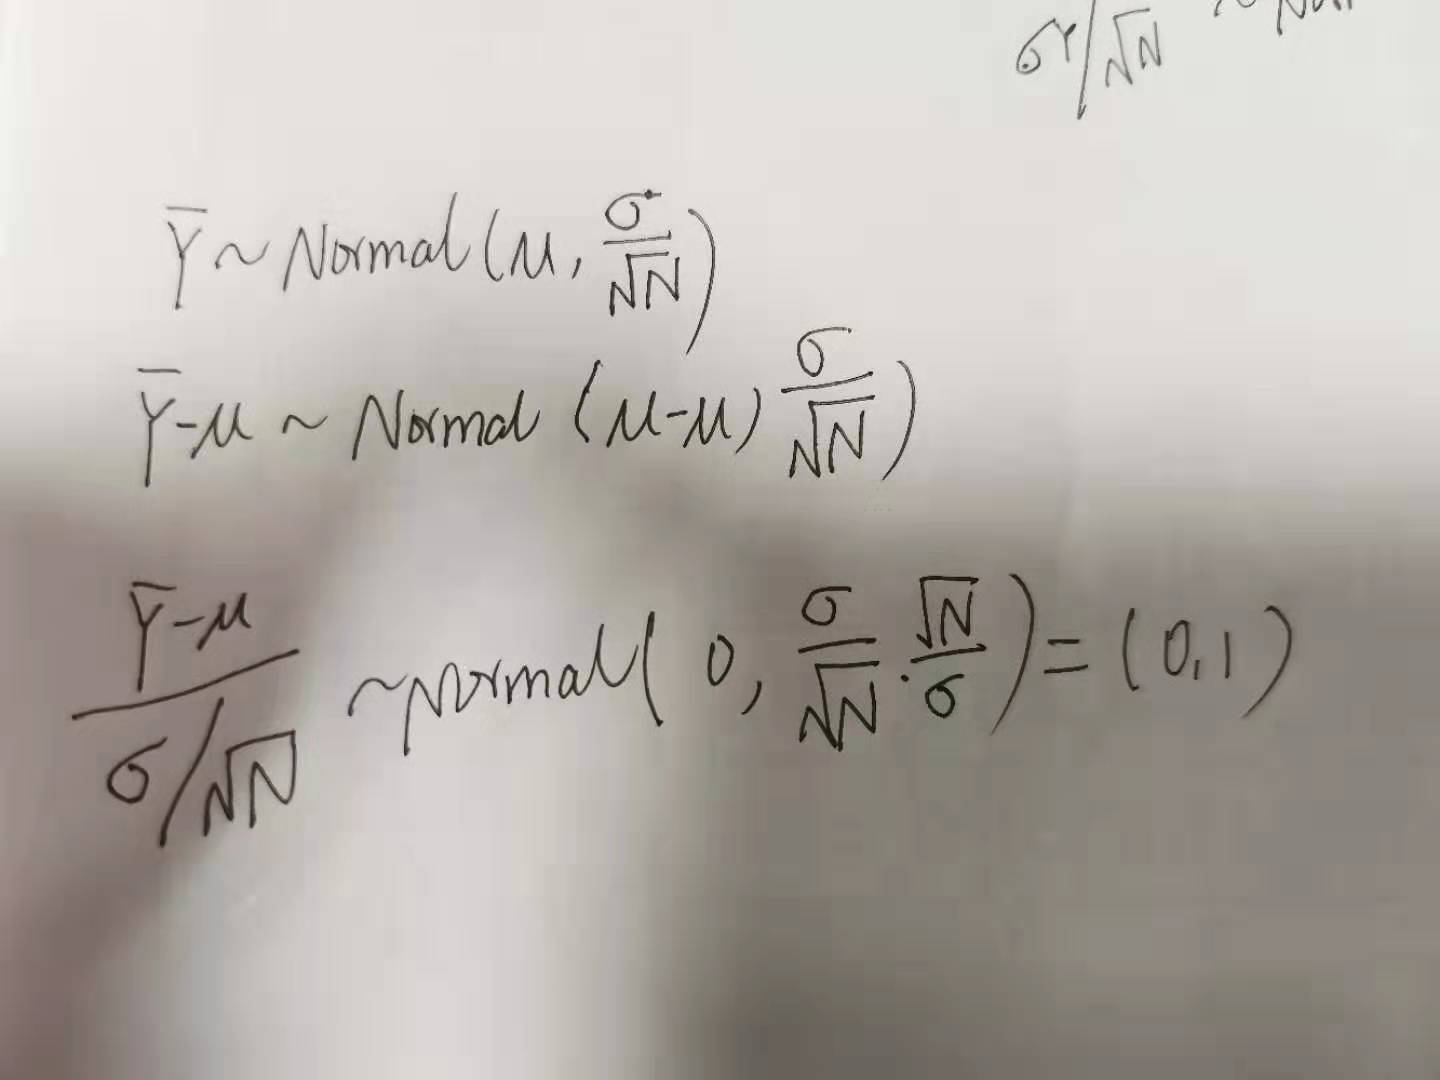 σY/√N ~ Nor
Ȳ ~ Normal (μ, σ/√N)
Ȳ-μ ~ Normal (μ-μ, σ/√N)
(Ȳ-μ)/(σ/√N) ~ normal ( 0, σ/√N · √N/σ ) = ( 0, 1 )